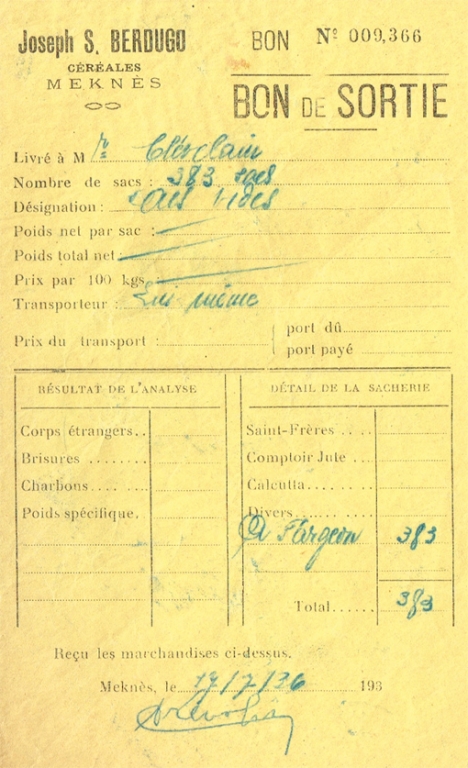 Joseph S. BERDUGO
CÉRÉALES
MEKNÈS
BON Nº 009,366
BON DE SORTIE
Livré à M r
Nombre de sacs : 383 sacs
Désignation : sacs vides
Poids net par sac :
Poids total net
Prix par 100 kgs
Transporteur : Lui même
Prix du transport :
port dû
port payé
RÉSULTAT DE L'ANALYSE
Corps étrangers..
Brisures .......
Charbons.... ....
Poids spécifique.
DÉTAIL DE LA SACHERIE
Saint-Frères ....
Comptoir Jute ....
Calcutta.........
Divers..........
383
Total...... 383
Reçu les marchandises ci-dessus.
Meknès, le 17/7/36 193